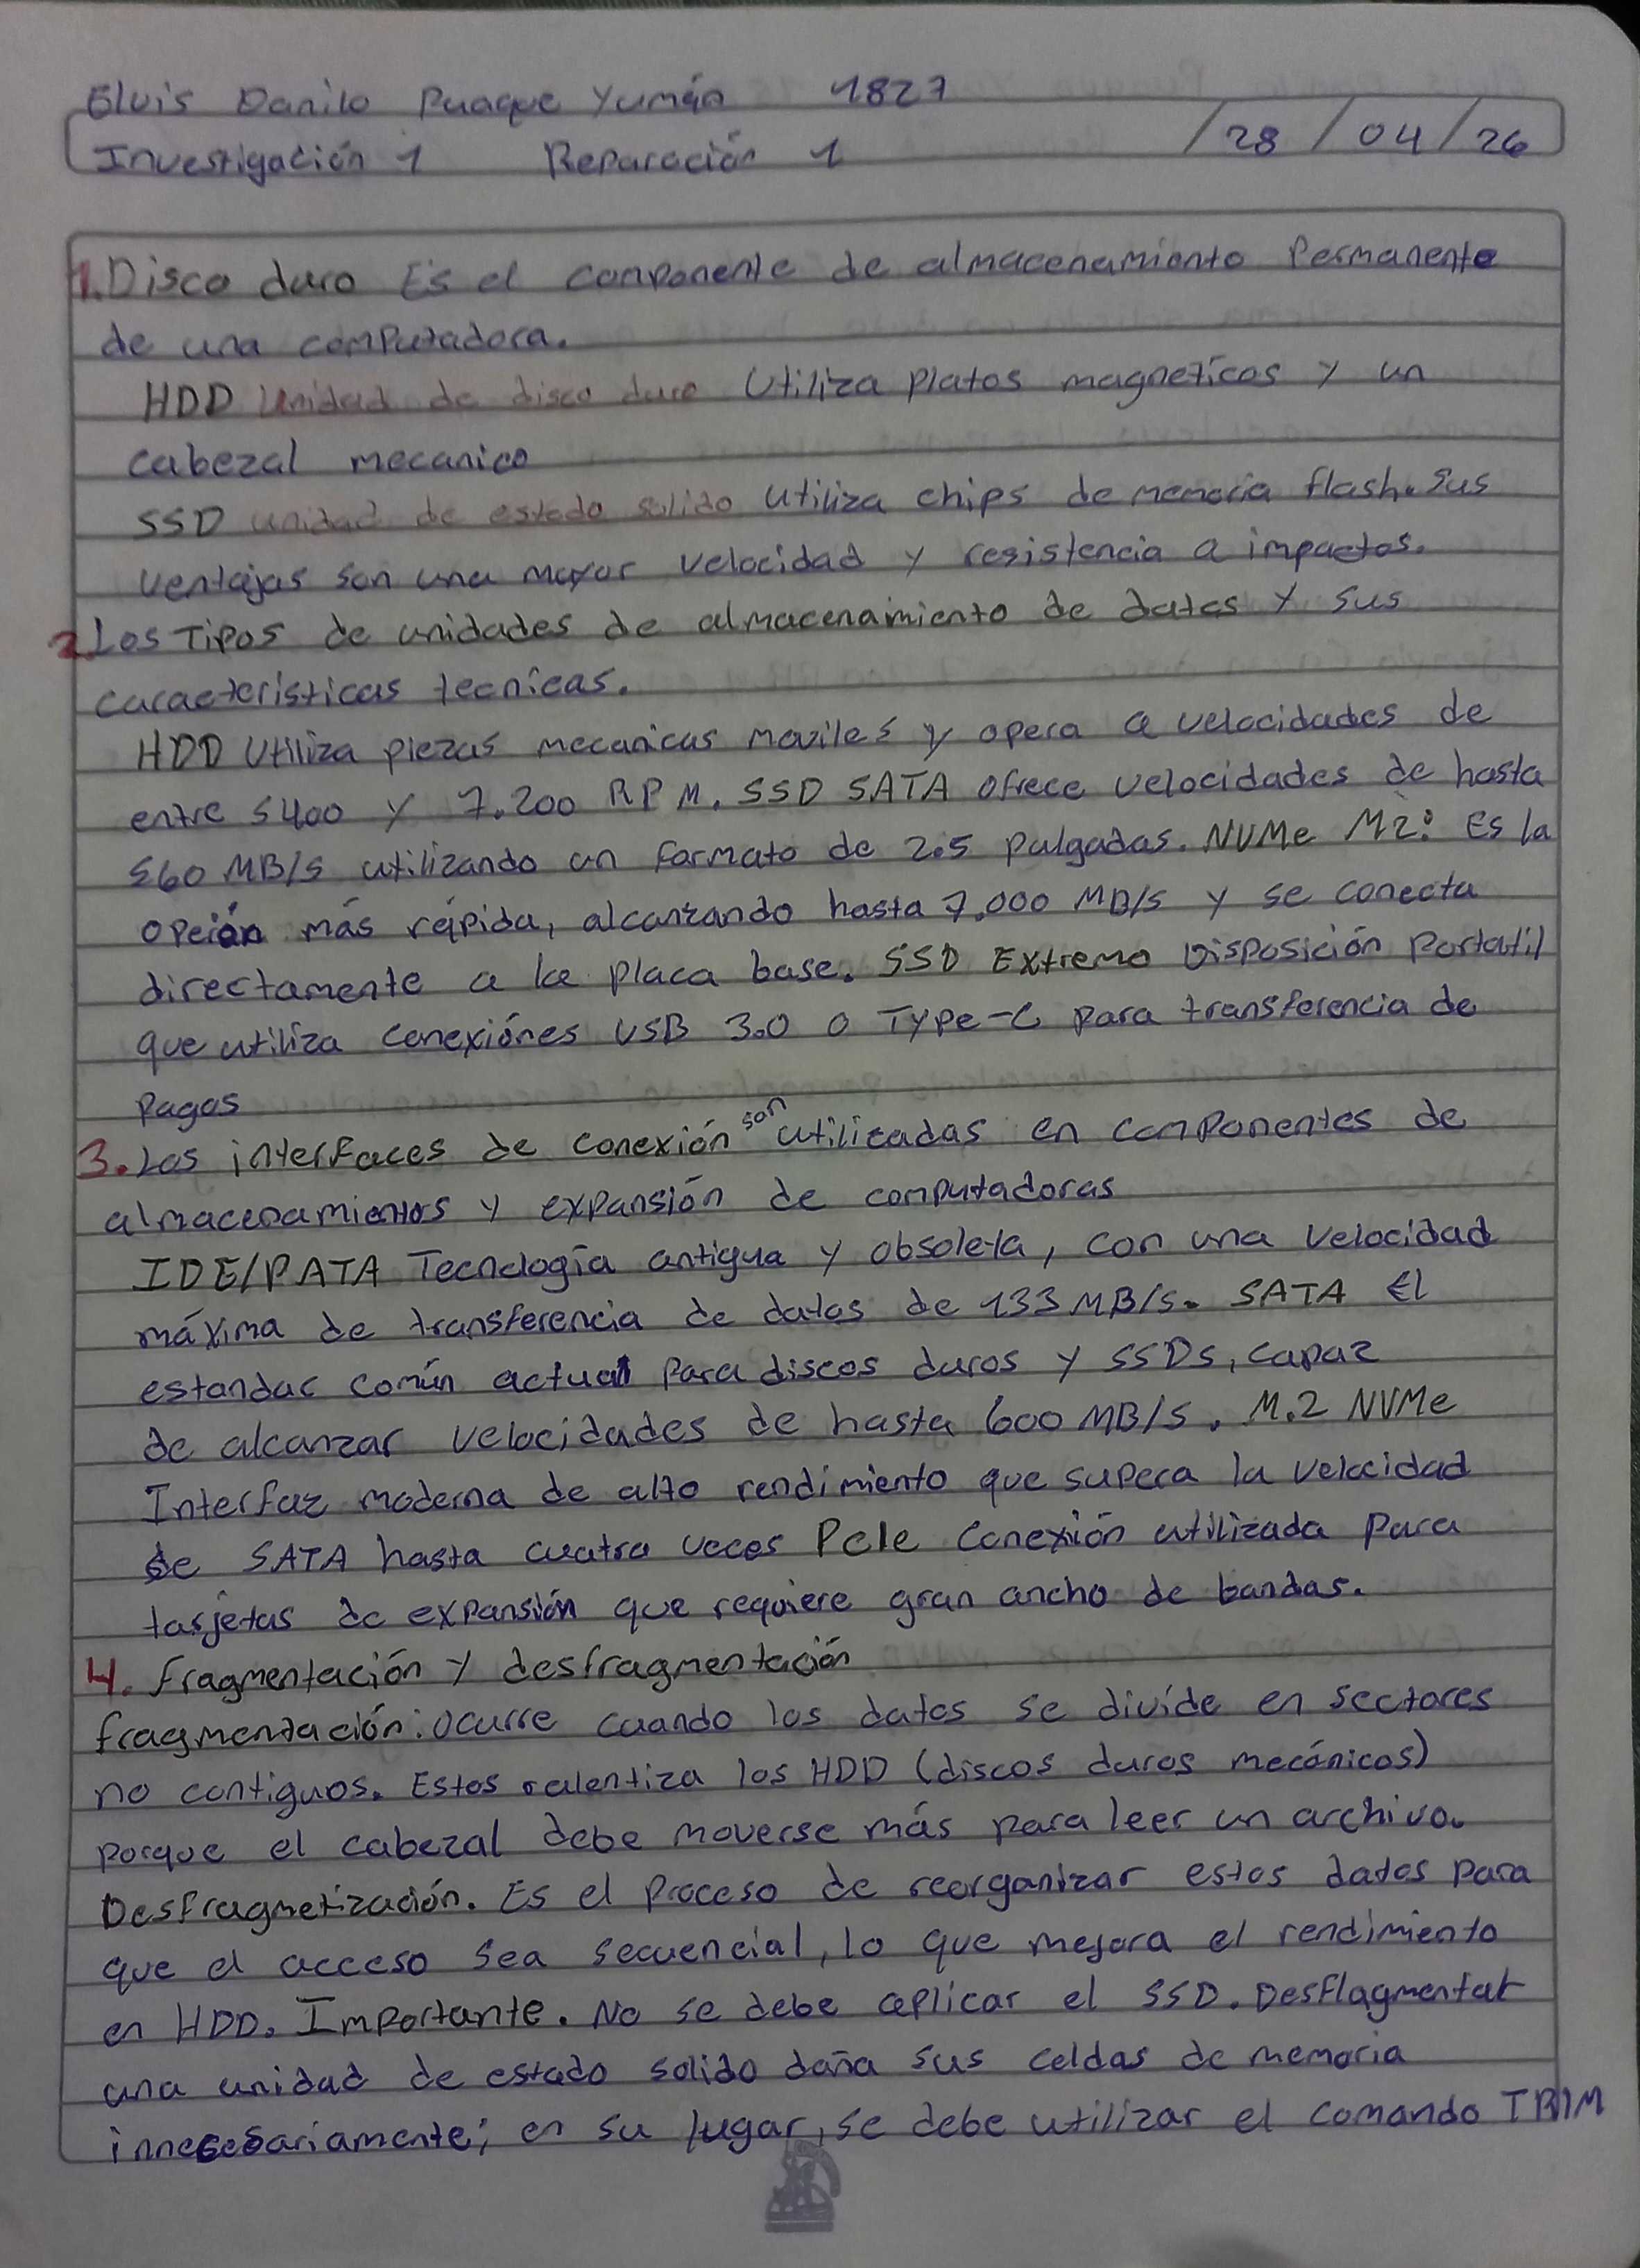 Elvis Danilo Puaque Yumán 1827
Investigación 1 Reparación 1 /28/04/26
1. Disco duro Es el componente de almacenamiento Permanente
de una computadora.
HDD Unidad de disco duro Utiliza platos magneticos y un
cabezal mecanico
SSD unidad de estado solido utiliza chips de memoria flash. Sus
ventajas son una mayor velocidad y resistencia a impactos.
2. Los Tipos de unidades de almacenamiento de datos y sus
caracteristicas tecnicas.
HDD Utiliza piezas mecanicas moviles y opera a velocidades de
entre 5400 y 7.200 RPM. SSD SATA ofrece velocidades de hasta
560 MB/s utilizando un formato de 2.5 pulgadas. NVMe M2: Es la
opción más rápida, alcanzando hasta 7.000 MB/s y se conecta
directamente a la placa base. SSD Extremo Disposición Portatil
que utiliza conexiónes USB 3.0 o Type-C para transferencia de
Pagos
3. Las interfaces de conexión son utilizadas en componentes de
almacenamientos y expansión de computadoras
IDE/PATA Tecnología antigua y obsoleta, con una velocidad
máxima de transferencia de datos de 133 MB/s. SATA El
estandar común actual Para discos duros y SSDs, capaz
de alcanzar velocidades de hasta 600 MB/s. M.2 NVMe
Interfaz moderna de alto rendimiento que supera la velocidad
de SATA hasta cuatro veces PcIe Conexión utilizada para
tarjetas de expansión que requiere gran ancho de bandas.
4. Fragmentación y desfragmentación
fragmentación: ocurre cuando los datos se divide en sectores
no contiguos. Estos ralentiza los HDD (discos duros mecánicos)
porque el cabezal debe moverse más para leer un archivo.
Desfragmetización. Es el proceso de reorganizar estos datos para
que el acceso sea secuencial, lo que mejora el rendimiento
en HDD. Importante. No se debe aplicar el SSD. Desflagmentar
una unidad de estado solido daña sus celdas de memoria
innecesariamente; en su lugar, se debe utilizar el comando TRIM